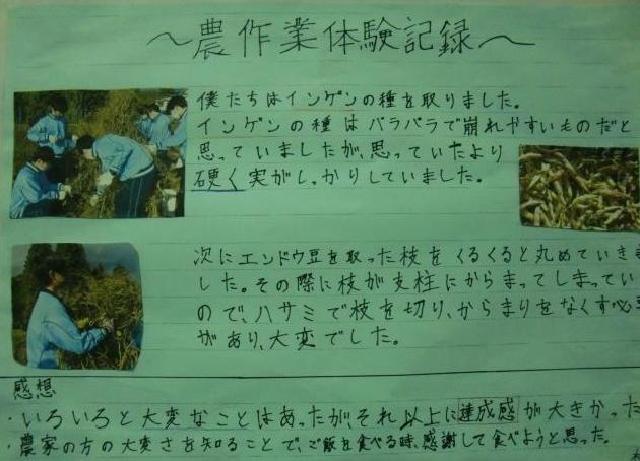 ～農作業体験記録～
僕たちはインゲンの種を取りました。
インゲンの種はバラバラで崩れやすいものだと
思っていましたが、思っていたより
硬く実がしっかりしていました。
次にエンドウ豆を取った枝をくるくると丸めていきま
した。その際に枝が支柱にからまってしまってい
ので、ハサミで枝を切り、からまりをなくす必
があり、大変でした。
感想
・いろいろと大変なことはあったが、それ以上に達成感が大きかった
・農家の方の大変さを知ることで、ご飯を食べる時、感謝して食べようと思った。